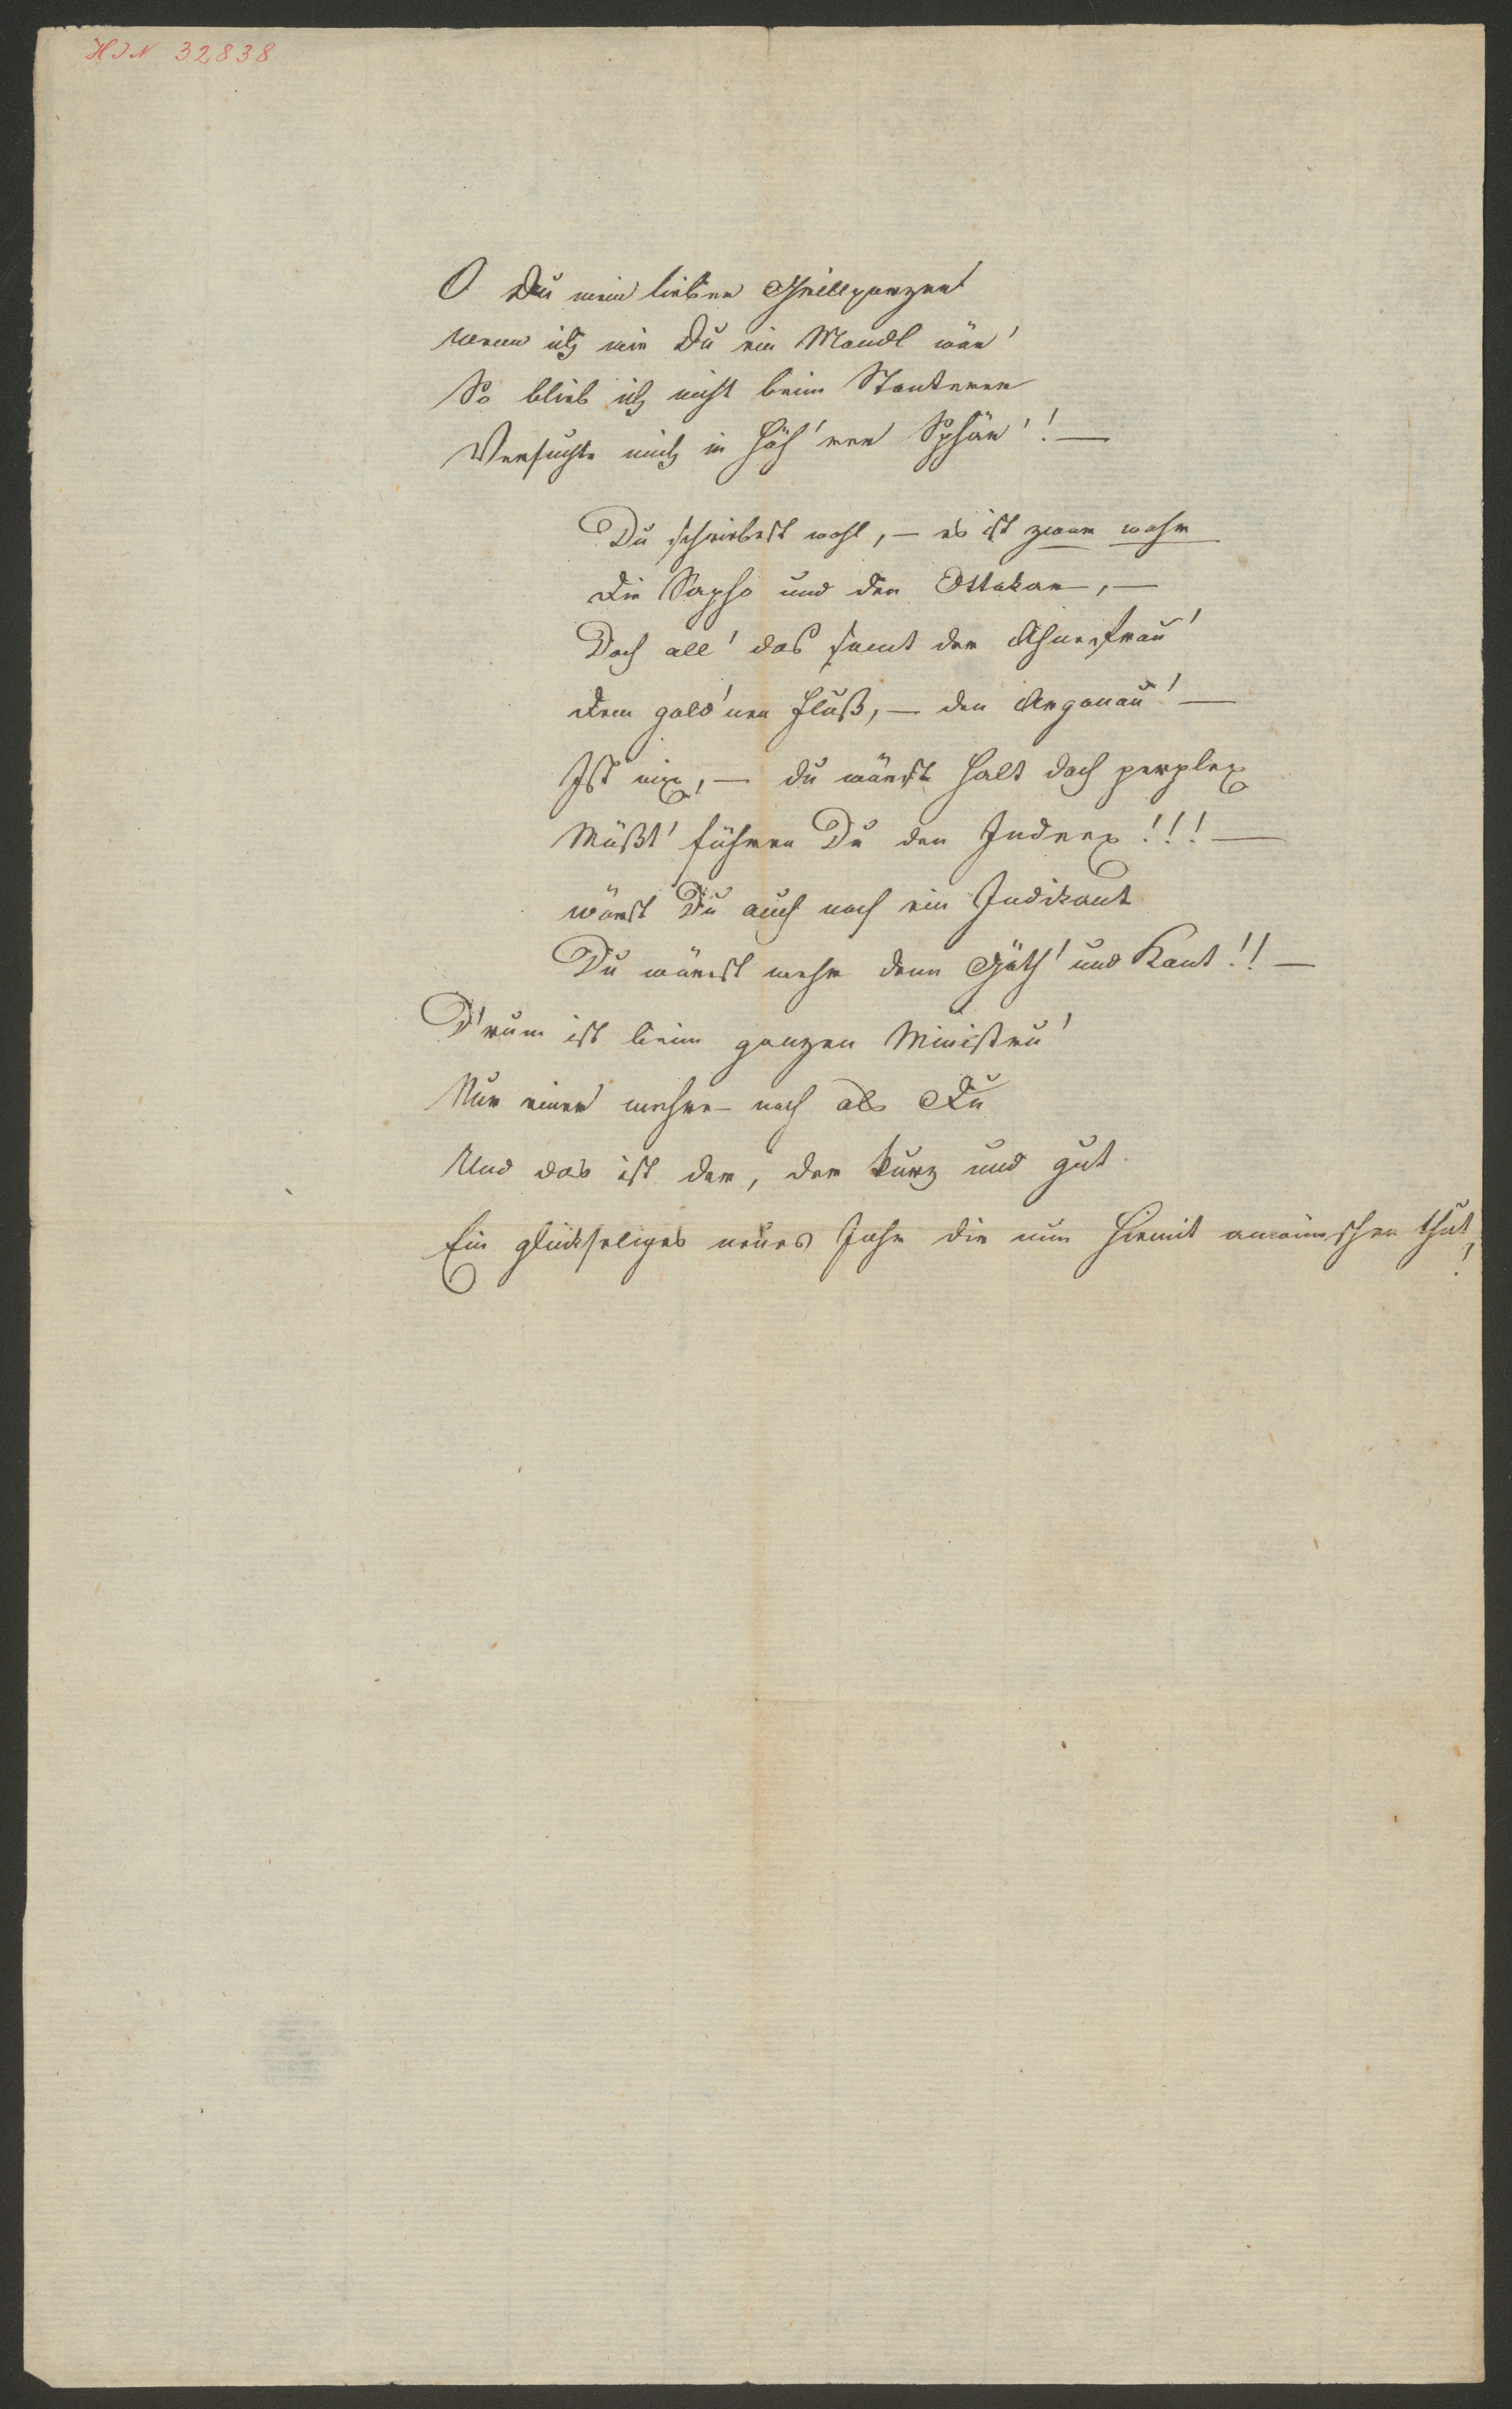 HIN 32838
O Du mein lieber Grillparzer
Wenn ich wie Du ein Mandl wär'
So blieb ich nicht beim
Versuchte mich in höh'rer Sphär'! —
Du schriebest wohl, — es ist zwar wahr
Die Sapho und den Ottokar, —
Doch all' das samt der Ahnenfrau'
Dem gold'nen Fluß, — den Arganau' —
Ist nix, — du wärest halt doch perplex
Müßt' führen Du den Indeex!!! —
wärst Du auch noch ein Indikant
Du wärest mehr denn Göth' und Kant!! —
D'rum ist beim ganzen Ministeu'
Nur einer mehr noch als Du
Und das ist der, der kurz und gut
Ein glückseliges neues Jahr dir nun hiemit anwünschen thut,!